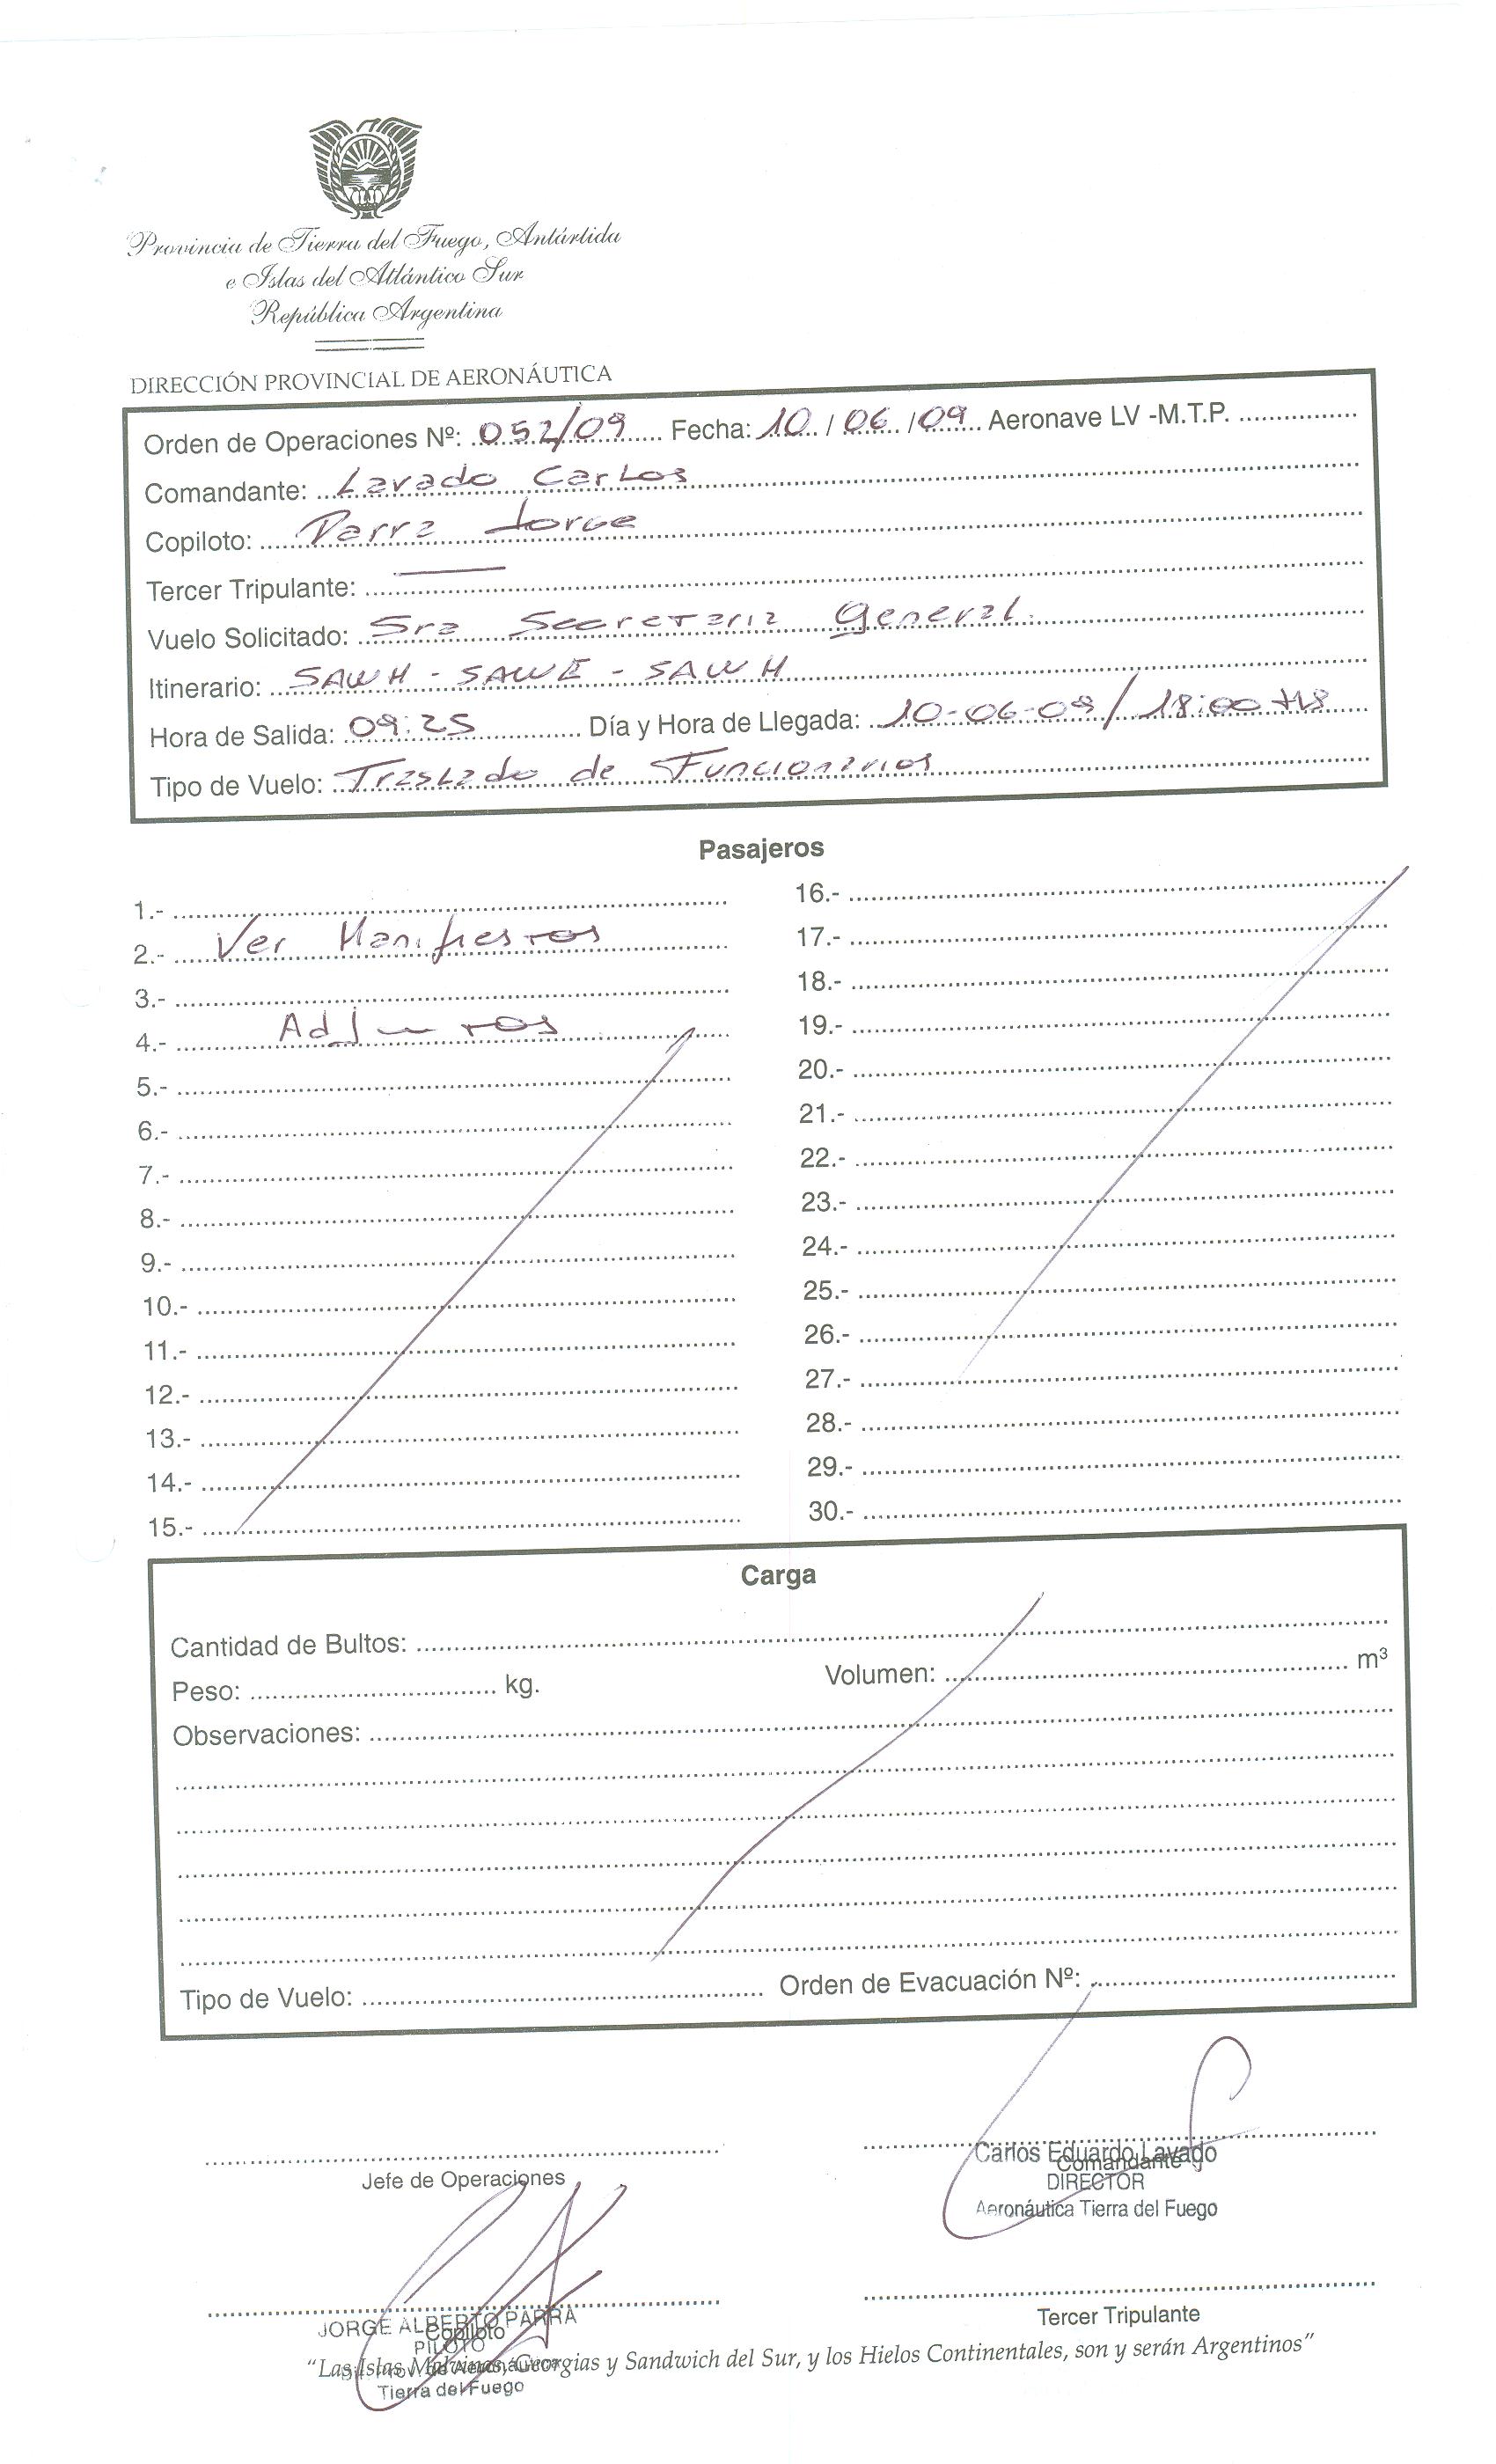 Provincia de Tierra del Fuego, Antártida
e Islas del Atlántico Sur
República Argentina
DIRECCIÓN PROVINCIAL DE AERONÁUTICA
Orden de Operaciones Nº: 052/09 Fecha: 10 / 06 / 09 Aeronave LV -M.T.P.
Comandante: Lavado Carlos
Copiloto: Parra Jorge
Tercer Tripulante: —
Vuelo Solicitado: Sra Secretaria General.
Itinerario: SAWH - SAWE - SAWH
Hora de Salida: 09:25 Día y Hora de Llegada: 10-06-09 / 18:00 HS
Tipo de Vuelo: Traslado de Funcionarios
Pasajeros
1.-
2.- Ver Manifiestos
3.-
4.- Adjuntos
5.-
6.-
7.-
8.-
9.-
10.-
11.-
12.-
13.-
14.-
15.-
16.-
17.-
18.-
19.-
20.-
21.-
22.-
23.-
24.-
25.-
26.-
27.-
28.-
29.-
30.-
Carga
Cantidad de Bultos:
Peso: kg. Volumen: m³
Observaciones:
Tipo de Vuelo: Orden de Evacuación Nº:
Jefe de Operaciones
Carlos Eduardo Lavado
Comandante
DIRECTOR
Aeronáutica Tierra del Fuego
JORGE ALBERTO PARRA
Copiloto
PILOTO
Tercer Tripulante
“Las Islas Malvinas, Georgias y Sandwich del Sur, y los Hielos Continentales, son y serán Argentinos”
Aeronáutica
Tierra del Fuego